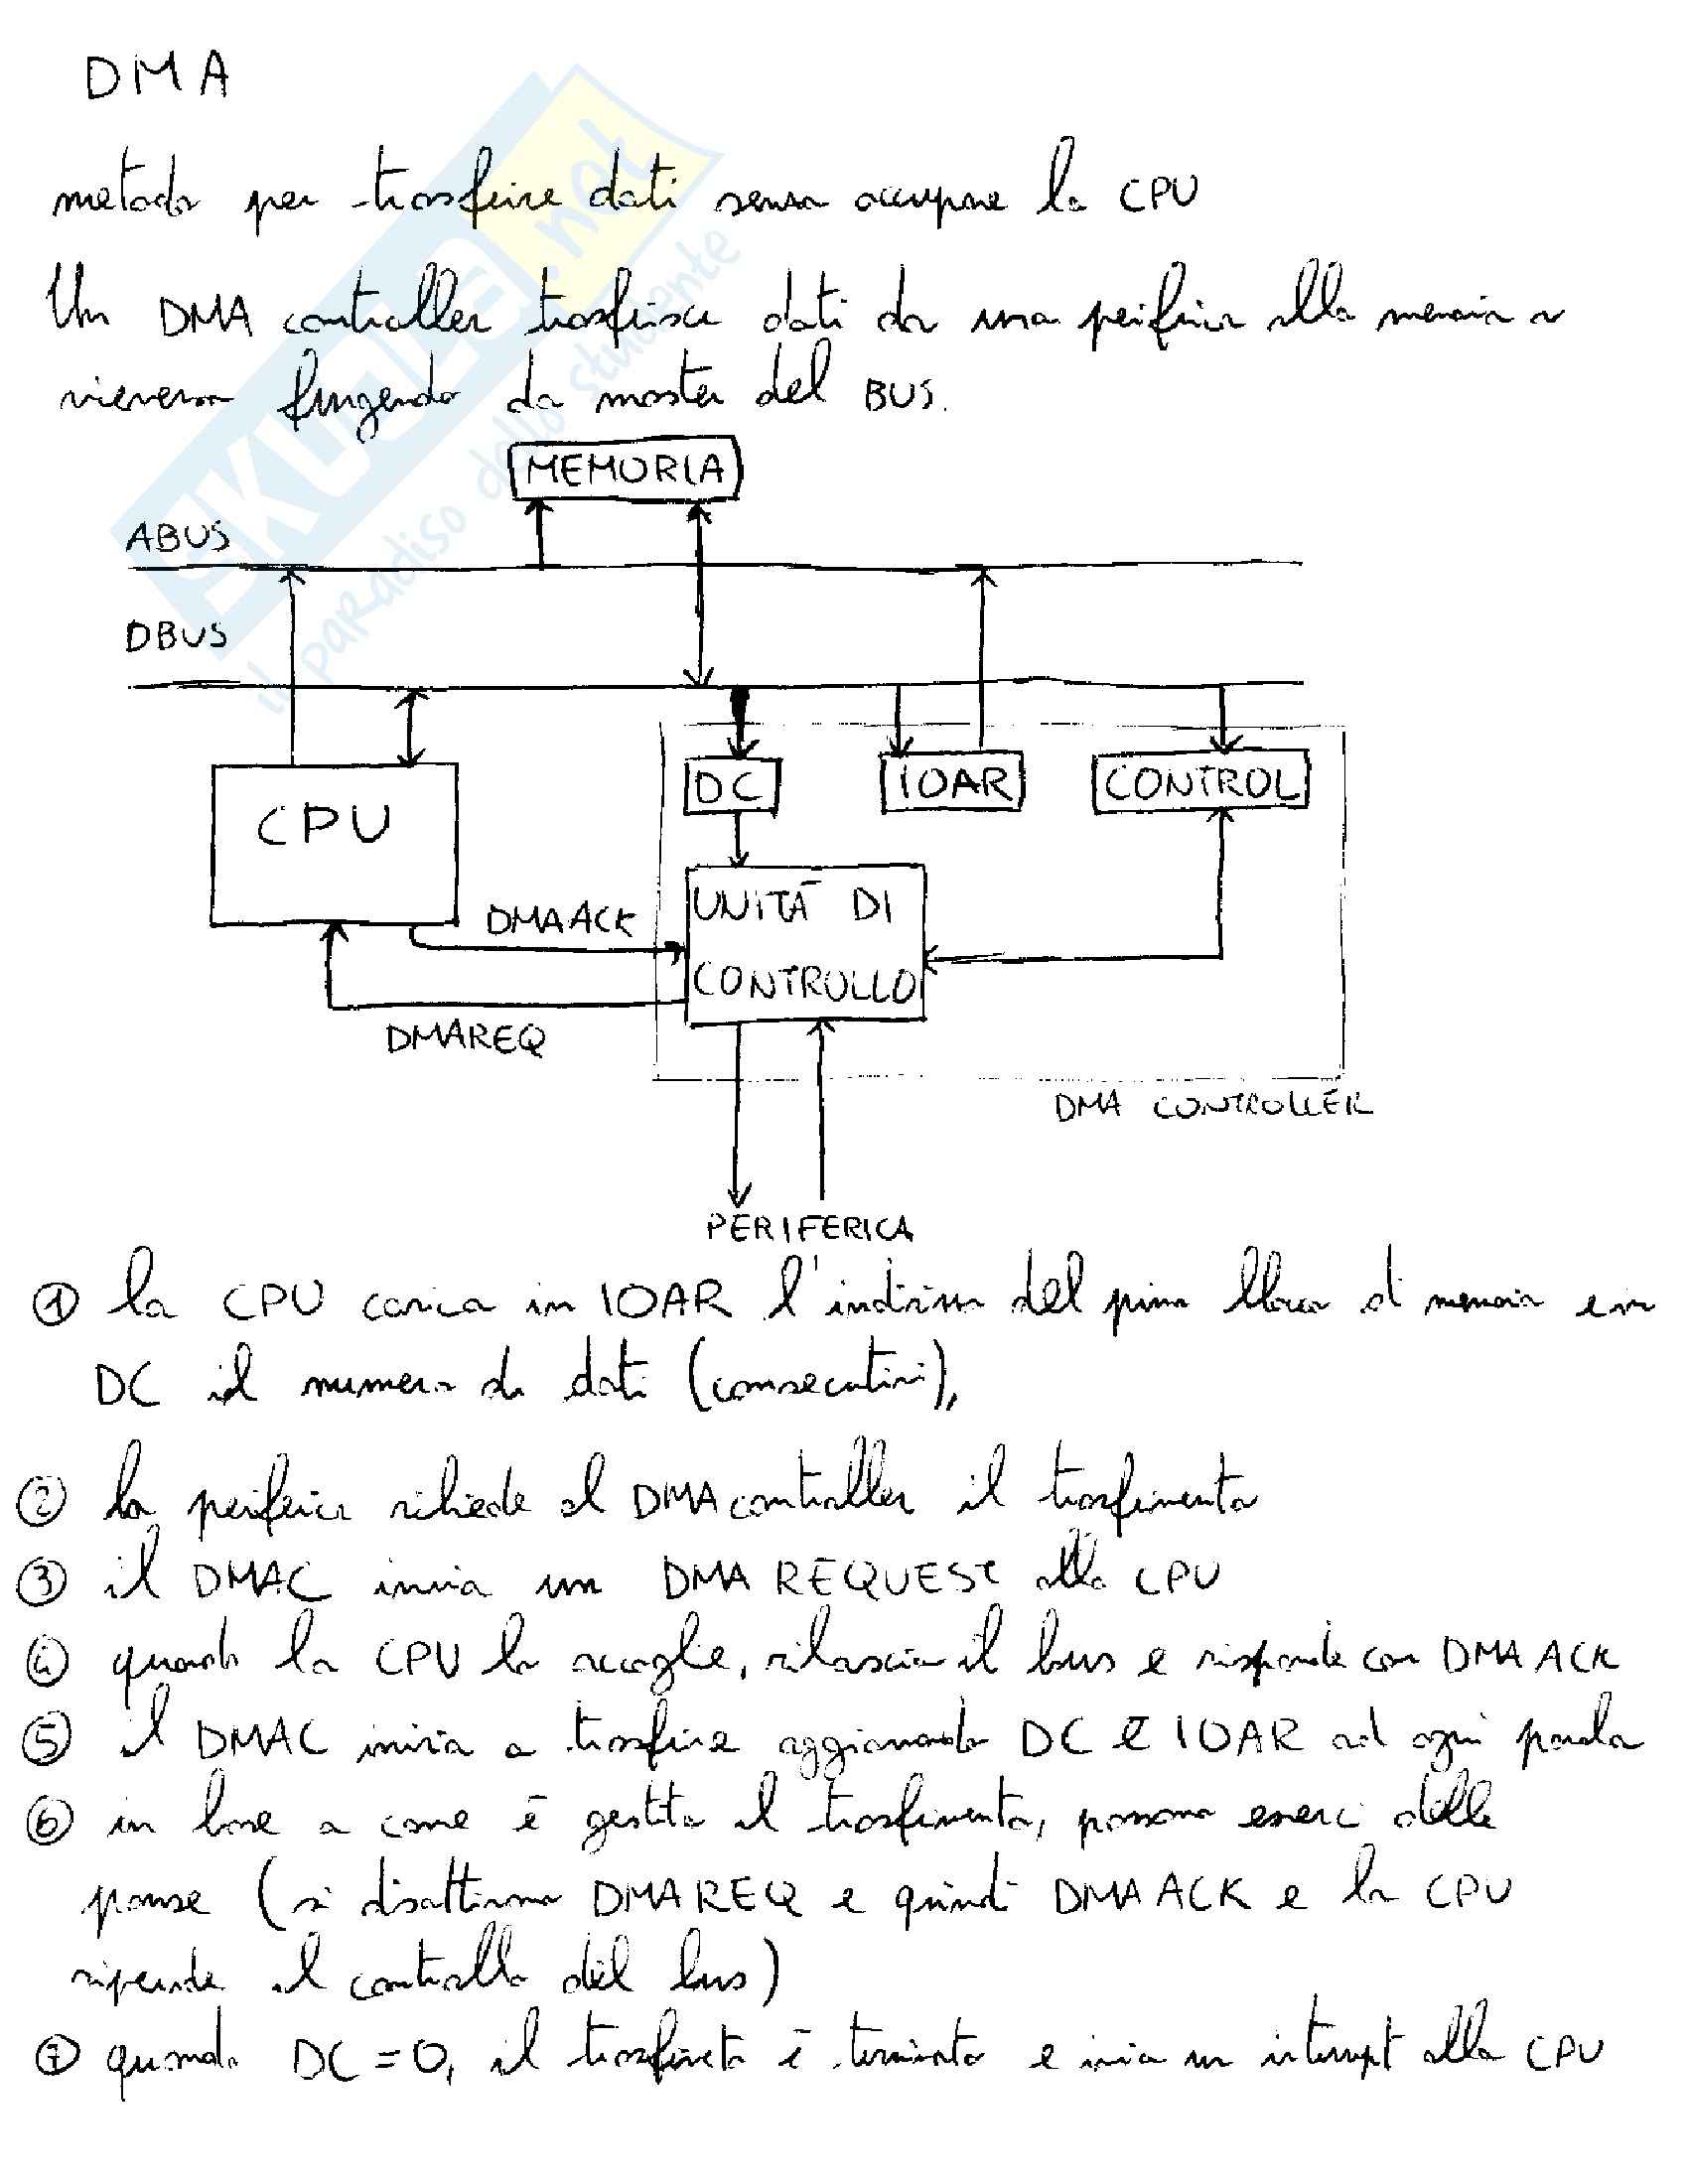 DMA
metodo per trasferire dati senza occupare la CPU
Un DMA controller trasferisce dati da una periferica alla memoria o
viceversa fungendo da master del BUS.
MEMORIA
ABUS
DBUS
DC
IOAR
CONTROL
CPU
UNITÀ DI
CONTROLLO
DMAACK
DMAREQ
DMA CONTROLLER
PERIFERICA
① la CPU carica in IOAR l'indirizzo del primo blocco di memoria e in
DC il numero di dati (consecutivi),
② la periferica richiede al DMA controller il trasferimento
③ il DMAC invia un DMA REQUEST alla CPU
④ quando la CPU lo accoglie, rilascia il bus e risponde con DMA ACK
⑤ il DMAC inizia a trasferire aggiornando DC e IOAR ad ogni parola
⑥ in base a come è gestito il trasferimento, possono esserci delle
pause (si disattivano DMAREQ e quindi DMAACK e la CPU
riprende il controllo del bus)
⑦ quando DC=0, il trasferimento è terminato e invia un interrupt alla CPU
SKUOLA.net
il paradiso dello studente